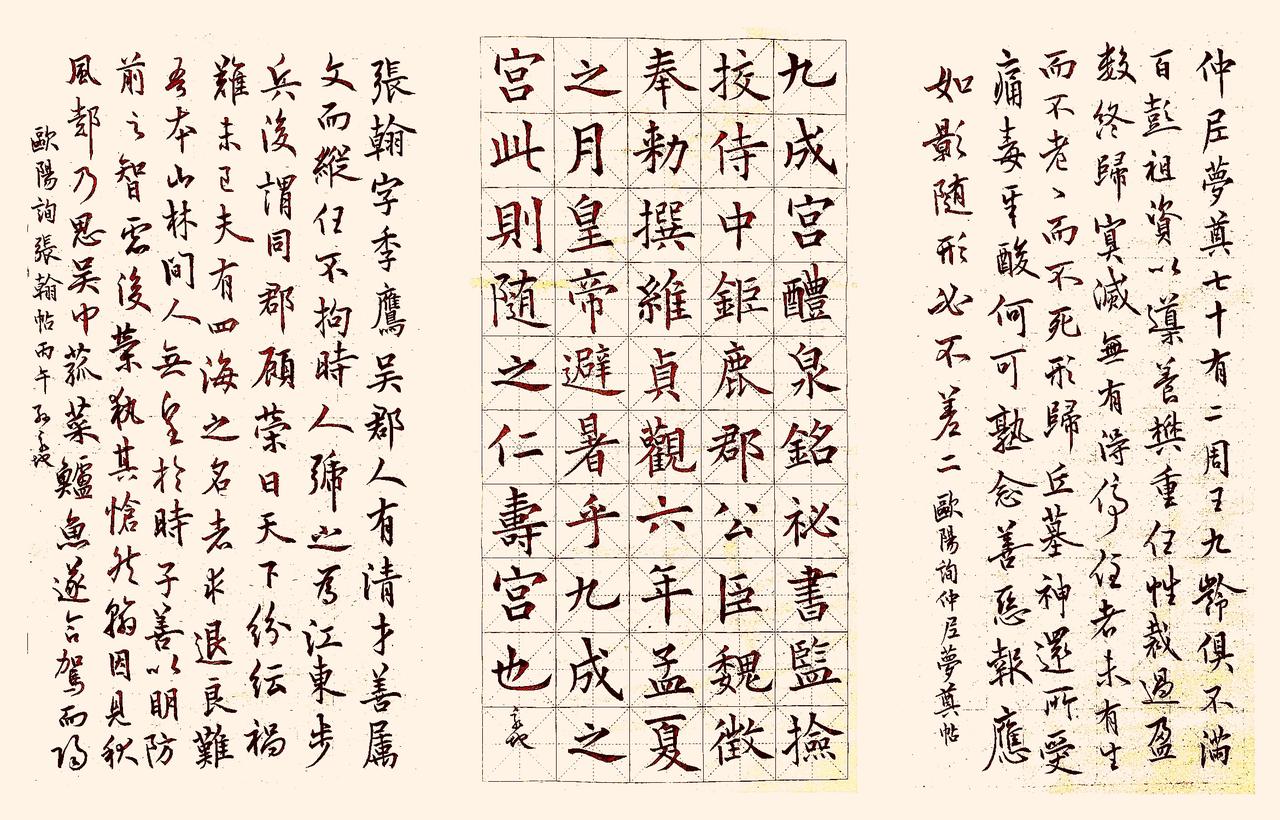 仲尼夢奠七十有二周王九齡俱不滿
百彭祖資以導養樊重任性裁過盈
數終歸冥滅無有得停住者未有生
而不老〻而不死形歸丘墓神還所受
痛毒辛酸何可熟念善惡報應
如影隨形必不差二
歐陽詢仲尼夢奠帖
九成宮醴泉銘祕書監撿
挍侍中鉅鹿郡公臣魏徵
奉勅撰維貞觀六年孟夏
之月皇帝避暑乎九成之
宮此則随之仁壽宮也
張翰字季鷹吳郡人有清才善属
文而縱任不拘時人號之為江東步
兵後謂同郡顧榮曰天下紛紜禍
難未已夫有四海之名者求退良難
吾本山林間人無望於時子善以明防
前以智慮後榮執其愴然翰因見秋
風起乃思吳中菰菜鱸魚遂命駕而歸
歐陽詢張翰帖丙午